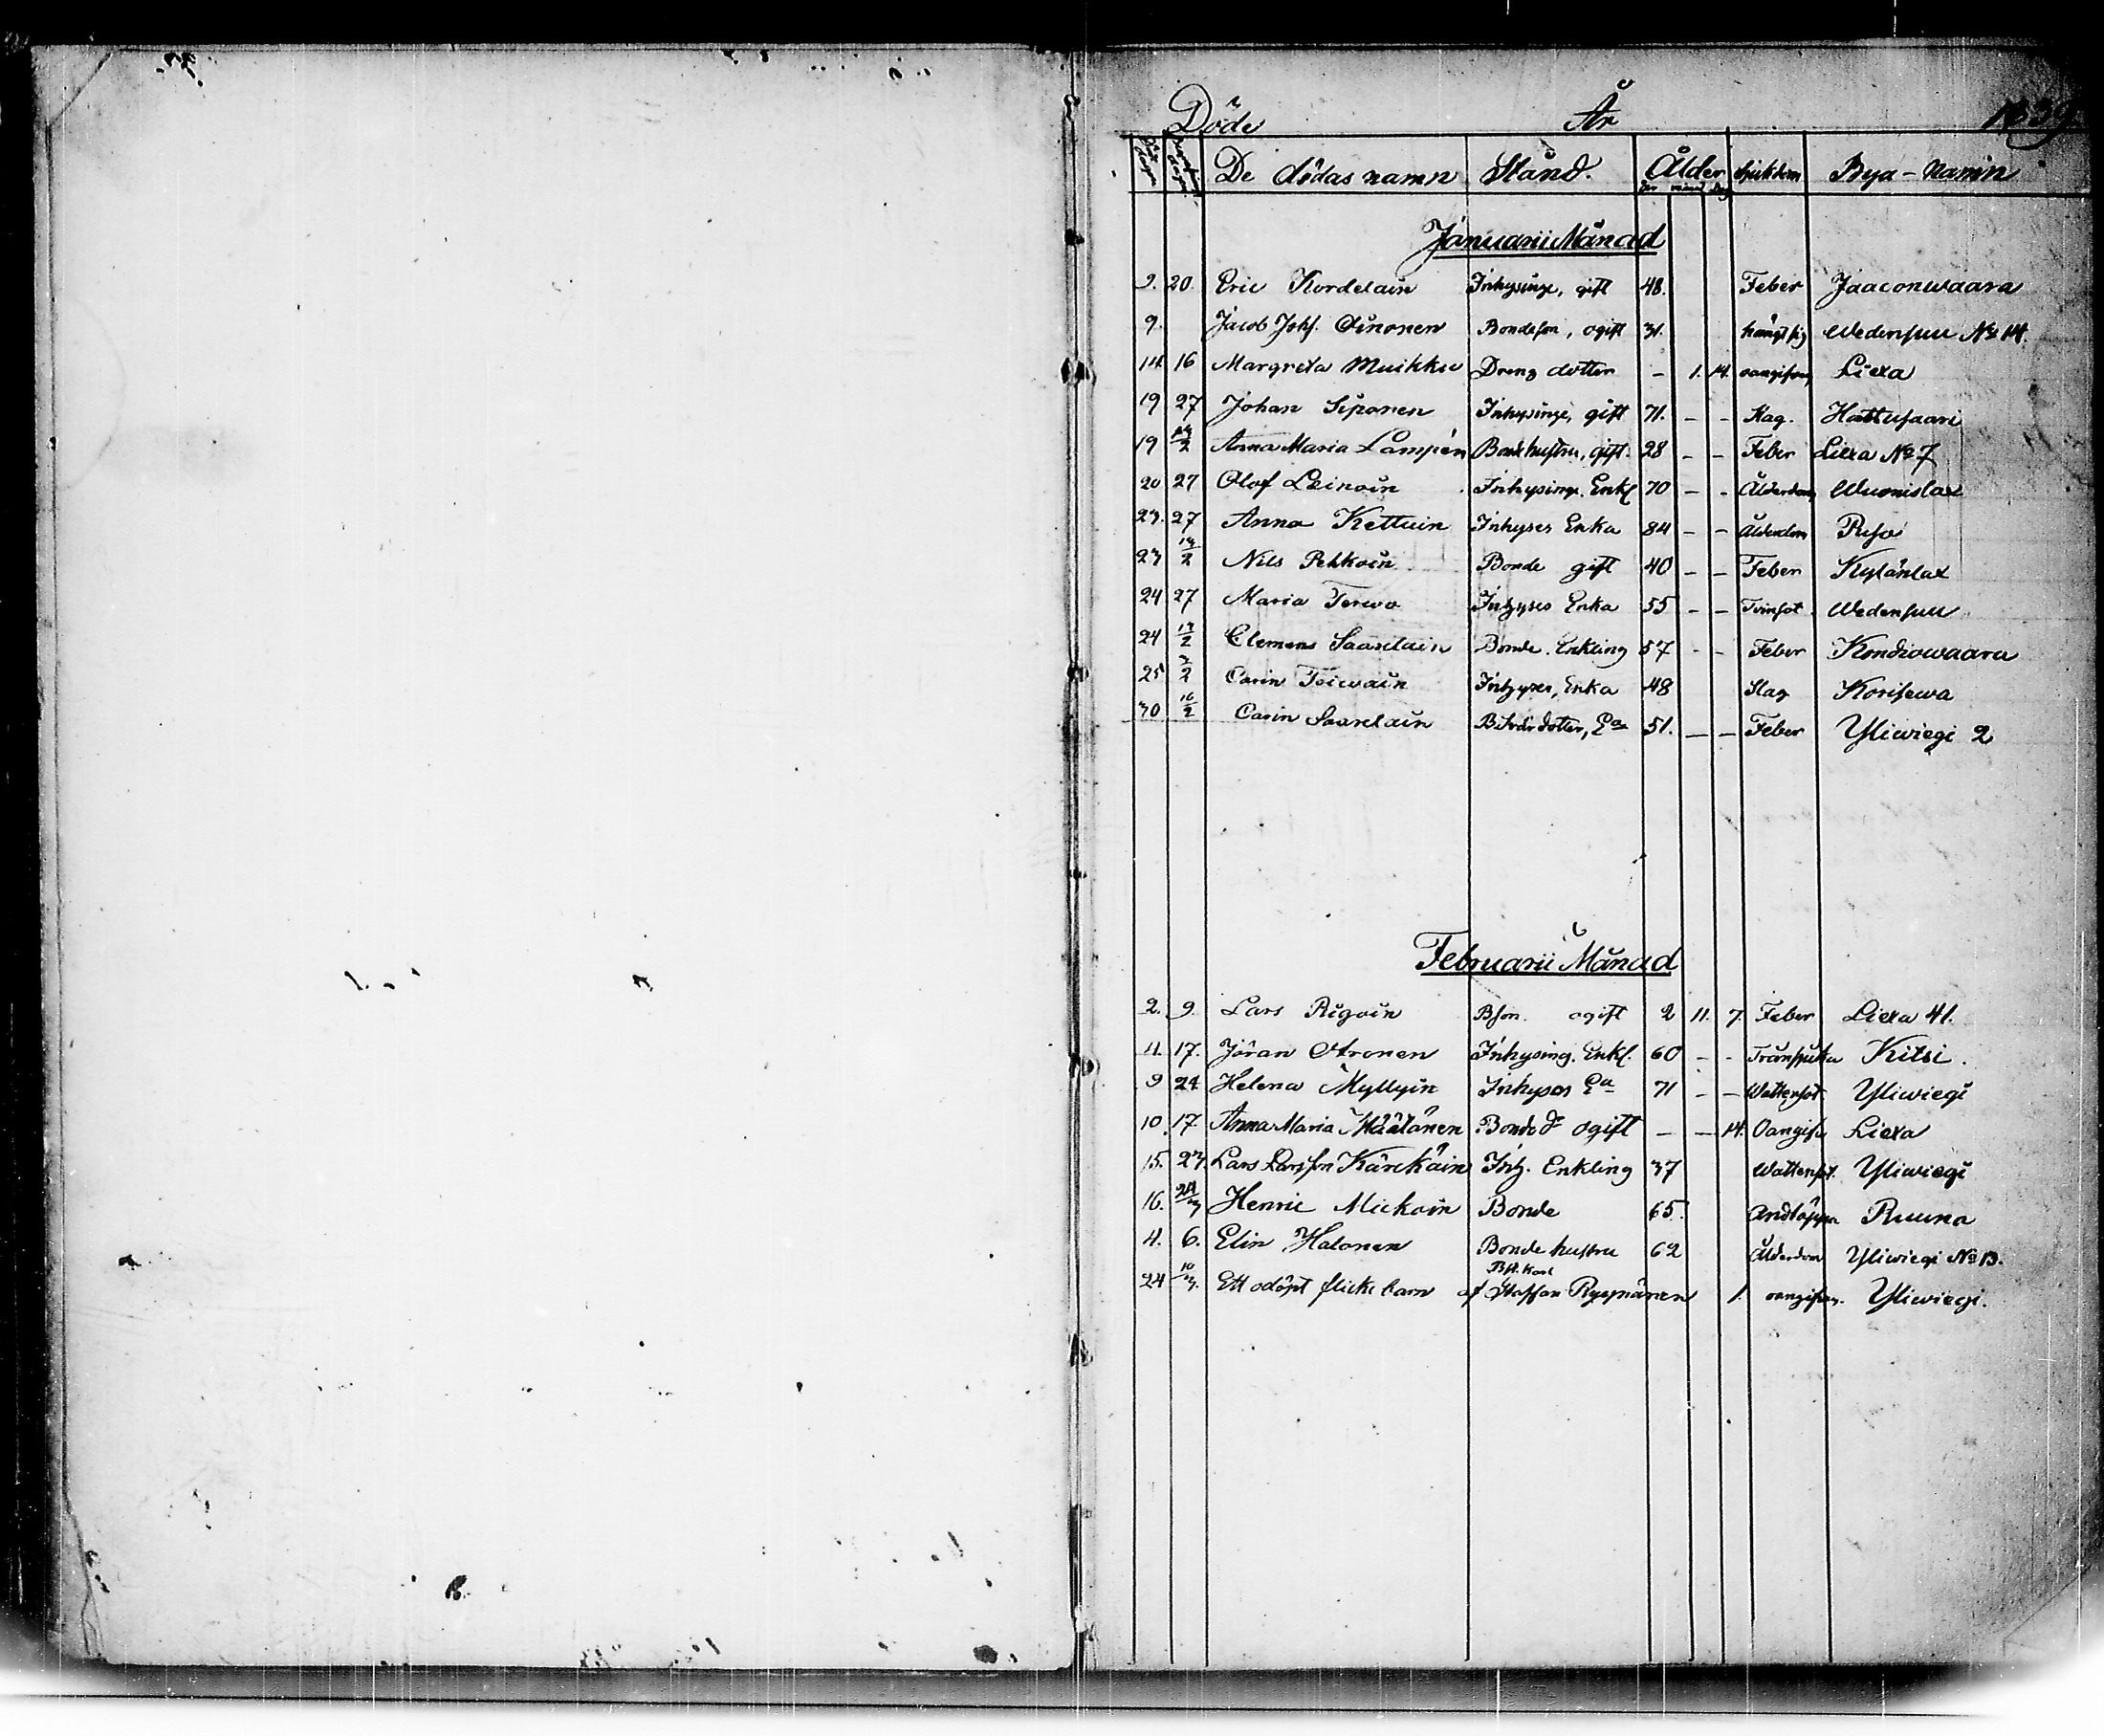 Döde År 1839.
De dödas namn Stånd. Ålder Sjukdom Bya-Namn
Januarii Månad
9. 20. Eric Kordelain Inhysinge, gift 48. Feber Jaaconwaara
9. Jacob Johs. Oinonen Bondeson, ogift 31. hängt sig Wedensuu No 14.
14 16 Margreta Muikku Dreng dotter - 1. 14. oangifven Liexa
19 27 Johan Siponen Inhysinge, gift 71. - - Slag. Hattusaari
19 14/2 Anna Maria Lampén Bondhustru, gift. 28 - - Feber Liexa No 7
20 27 Olof Leinoin Inhysinge. Enkl 70 - - Ålderdom Wuonislax
23. 27 Anna Kettuin Inhyses Enka 84 - - Ålderdom Puso
23 14/2 Nils Pehkoin Bonde gift 40 - - Feber Kylänlax
24 27 Maria Terwo Inhyses Enka 55 - - Tvinsot Wedensuu
24 14/2 Clemens Saarelain Bonde. Enkling 57 - - Feber Kondiowaara
25 3/2 Carin Toiwain Inhyses, Enka 48 Slag Korisewa
30 10/2 Carin Saarelain dotter, Ea 51. - - Feber Yliwiegi 2
Februarii Månad
2. 9. Lars Rigoin Bson. ogift 2 11. 7. Feber Liexa 41.
11. 17. Jöran Otronen Inhysing. Enkl. 60 - - Trånsjuka Kitsi.
9 24 Helena Myllyin Inhyses Ea 71 - - Wattensot Yliwiegi
10. 17. Anna Maria Määtänen Bonde dr ogift - - 14. Oangifv Liexa
15. 23. Lars Larsson Kärckäin Inh. Enkling 37 Wattensot. Yliwiegi
16. 24/3 Henric Mickoin Bonde 65. Andtäppa Ruuna
4. 6. Elin Halonen Bonde hustru 62 Ålderdom Yliwiegi No 13.
24 10/3. Ett odöpt flicke barn af Staffan Ryynänen 1. oangifven. Yliwiegi.